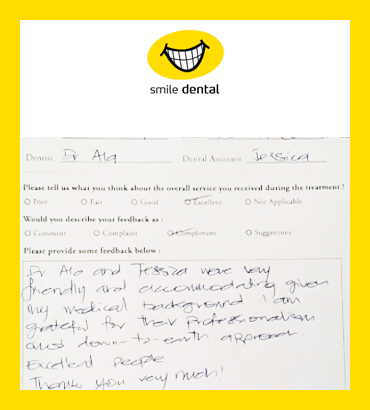 smile dental
Dentist Dr Ala Dental Assistant Jessica
Please tell us what you think about the overall service you received during the treatment?
Poor Fair Good Excellent Not Applicable
Would you describe your feedback as:
Comment Complaint Compliment Suggestions
Please provide some feedback below:
Dr Ala and Jessica were very
friendly and accommodating given
my medical background I am
grateful for their professionalism
and down-to-earth approach.
Excellent people
Thank you very much!